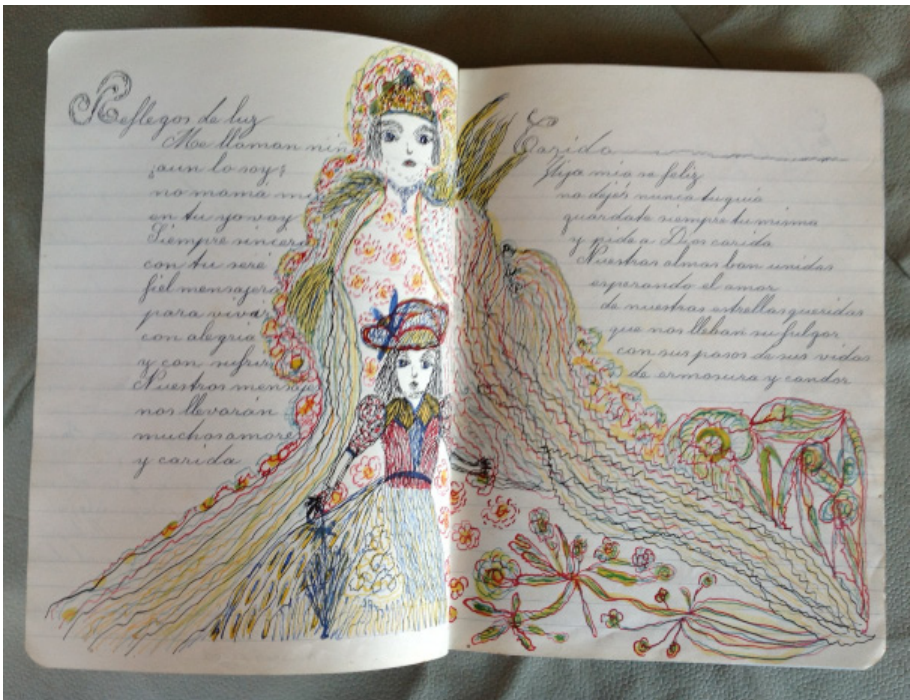 Reflegos de luz
Me llaman niñ
¡aun lo soy!
no mamá
en tu
Siempre sincera
con tu seré
fiel mensajera
para vivir
con alegria
y con sufrir
Nuestros mensaje
nos llevarán
muchos amore
y carida
Carida
Hija mia se feliz
no dejes nunca tu guia
guardate siempre tu misma
y pide a Dios carida
Nuestras almas ban unidas
esperando el amor
de nuestras estrellas queridas
que nos lleban su fulgor
con sus pasos de sus vidas
de ermosura y candor